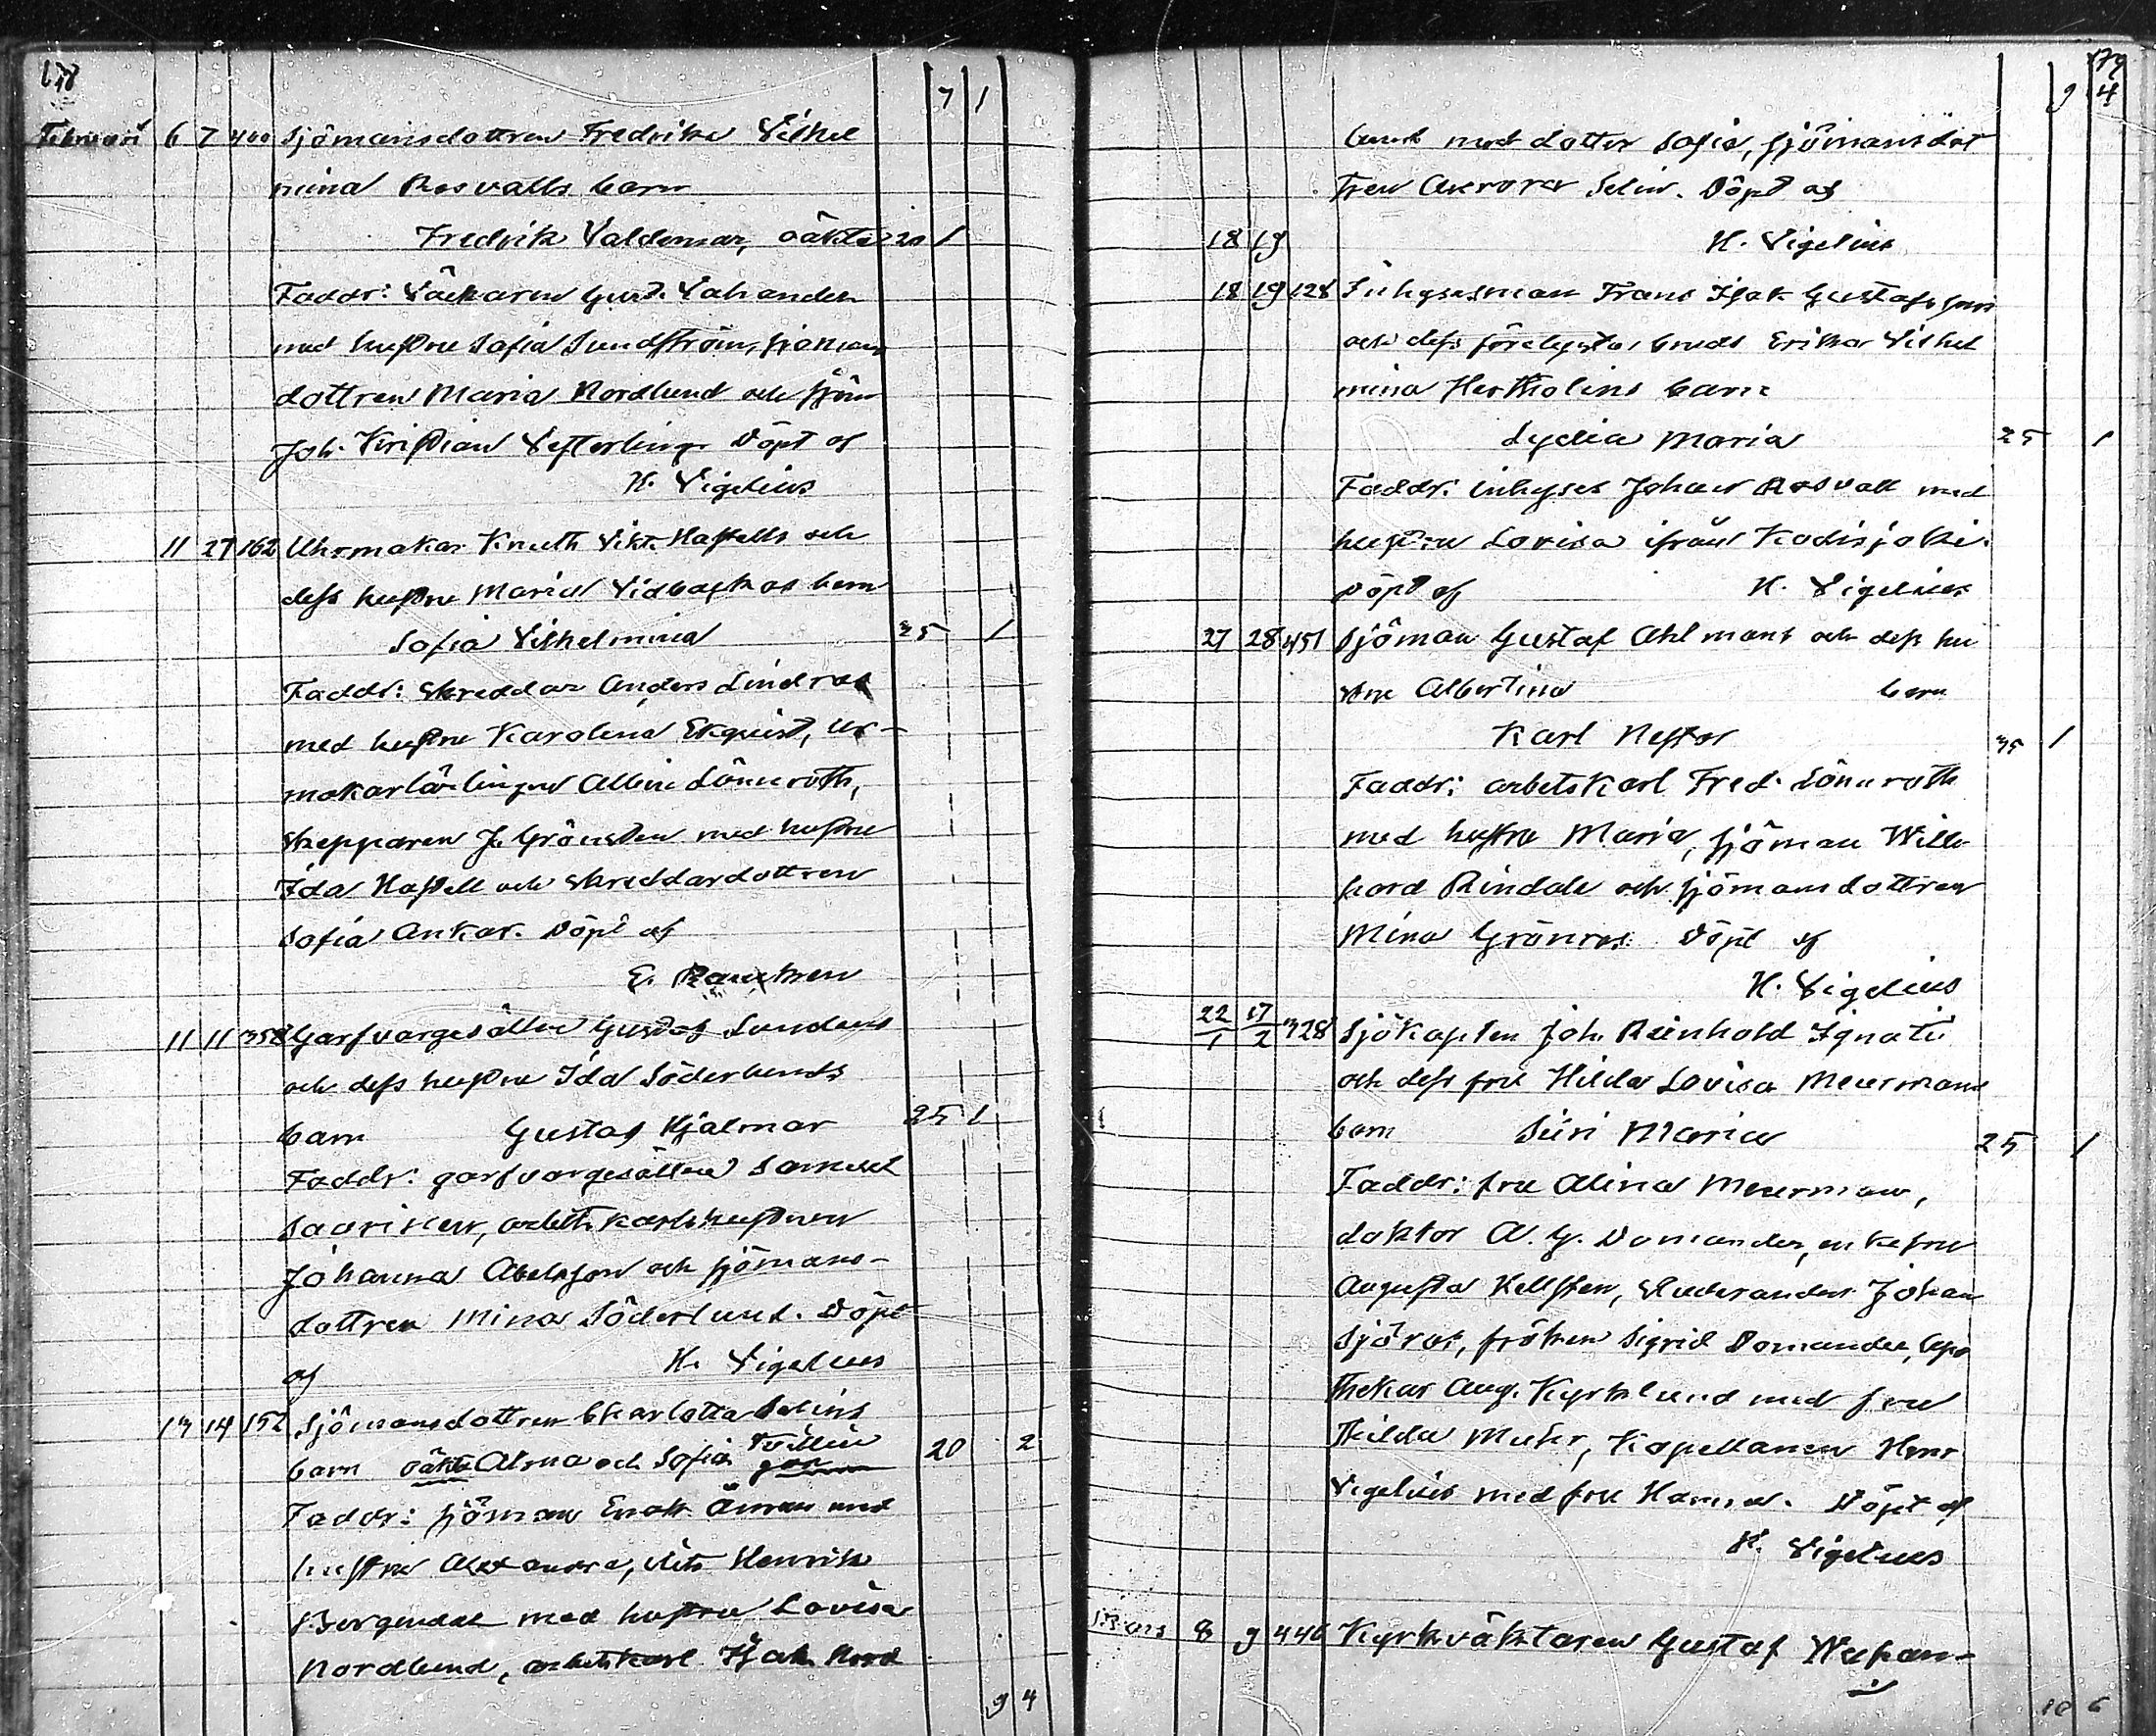 178
7 1
Februari 6 7 400 Sjömansdottren Fredrika Vilhel
mina Rosvalls barn
Fredrik Valdemar, oäkta 20 1
Faddr: Väckaren Gust. Valander
med hustru Sofia Sundström, sjömans
dottren Maria Nordlund och sjöm
Joh. Kristian Vesterling. Döpt af
K. Vigelius
11 27 162 Uhrmakar Knuth Vikt. Hastells och
dess hustru Maria Vidbäckas barn
Sofia Vilhelmina 35 1
Faddr: Skreddar Anders Lindroos
med hustru Karolina Ekqvist, ur-
makarlärlingen Albin Lönnroth,
Skepparen J. Grönsten med hustru
Ida Hastell och skreddardottren
Sofia Ankar. Döpt af
E. Rancken
11 11 358 Garfvargesällen Gustaf Lundens
och dess hustru Ida Söderlunds
barn Gustaf Hjalmar 25 1
Faddr: garfvargesällen Samuel
Sarinen, arbetskarlshustrun
Johanna Abelsson och sjömans-
dottren Mina Söderlund. Döpt
af K. Vigelius
13 14 152 Sjömansdottren Charlotta Selins
barn oäkta Alma och Sofia Tvillin
gar 20 2
Faddr: sjöman Enok Öman med
hustru Alexandra, Henrik
Bergendal med hustru Lovisa
Nordlund, arbetskarl Isak Nord
9 4
179
9 4
lund med dotter Sofia, sjömansdot
tren Aurora Selin. Döpt af
18 19 K. Vigelius
18 19 128 Inhysesman Frans Isak Gustafsson
och dess förelysta bruds Erika Vilhel
mina Hertholins barn
Lydia Maria 25 1
Faddr: inhyses Johan Rosvall med
hustru Lovisa ifrån Kodisjoki.
Döpt af K. Vigelius
27 28 451 Sjöman Gustaf Ahlmans och dess hu
stru Albertina barn
Karl Nestor 35 1
Faddr: arbetskarl Fred. Lönnroth
med hustru Maria, sjöman Will
hard Rindale och sjömansdottren
Mina Grönroos. Döpt af
K. Vigelius
22/1 17/2 328 Sjökapten Joh. Reinhold Ignatii
och dess fru Hilda Lovisa Meurmans
barn Siiri Maria 25 1
Faddr: fru Alina Meurman,
doktor A. G. Domander, enkefru
Augusta Kellsten, Studeranden Johan
Sjöros, fröken Sigrid Domander, Apo
thekar Aug. Kyrklund med fru
Hilda Muhr, Kapellanen Henr
Vigelius med fru Hanna. Döpt af
K. Vigelius
Mars 8 9 446 Kyrkväktaren Gustaf
10 6